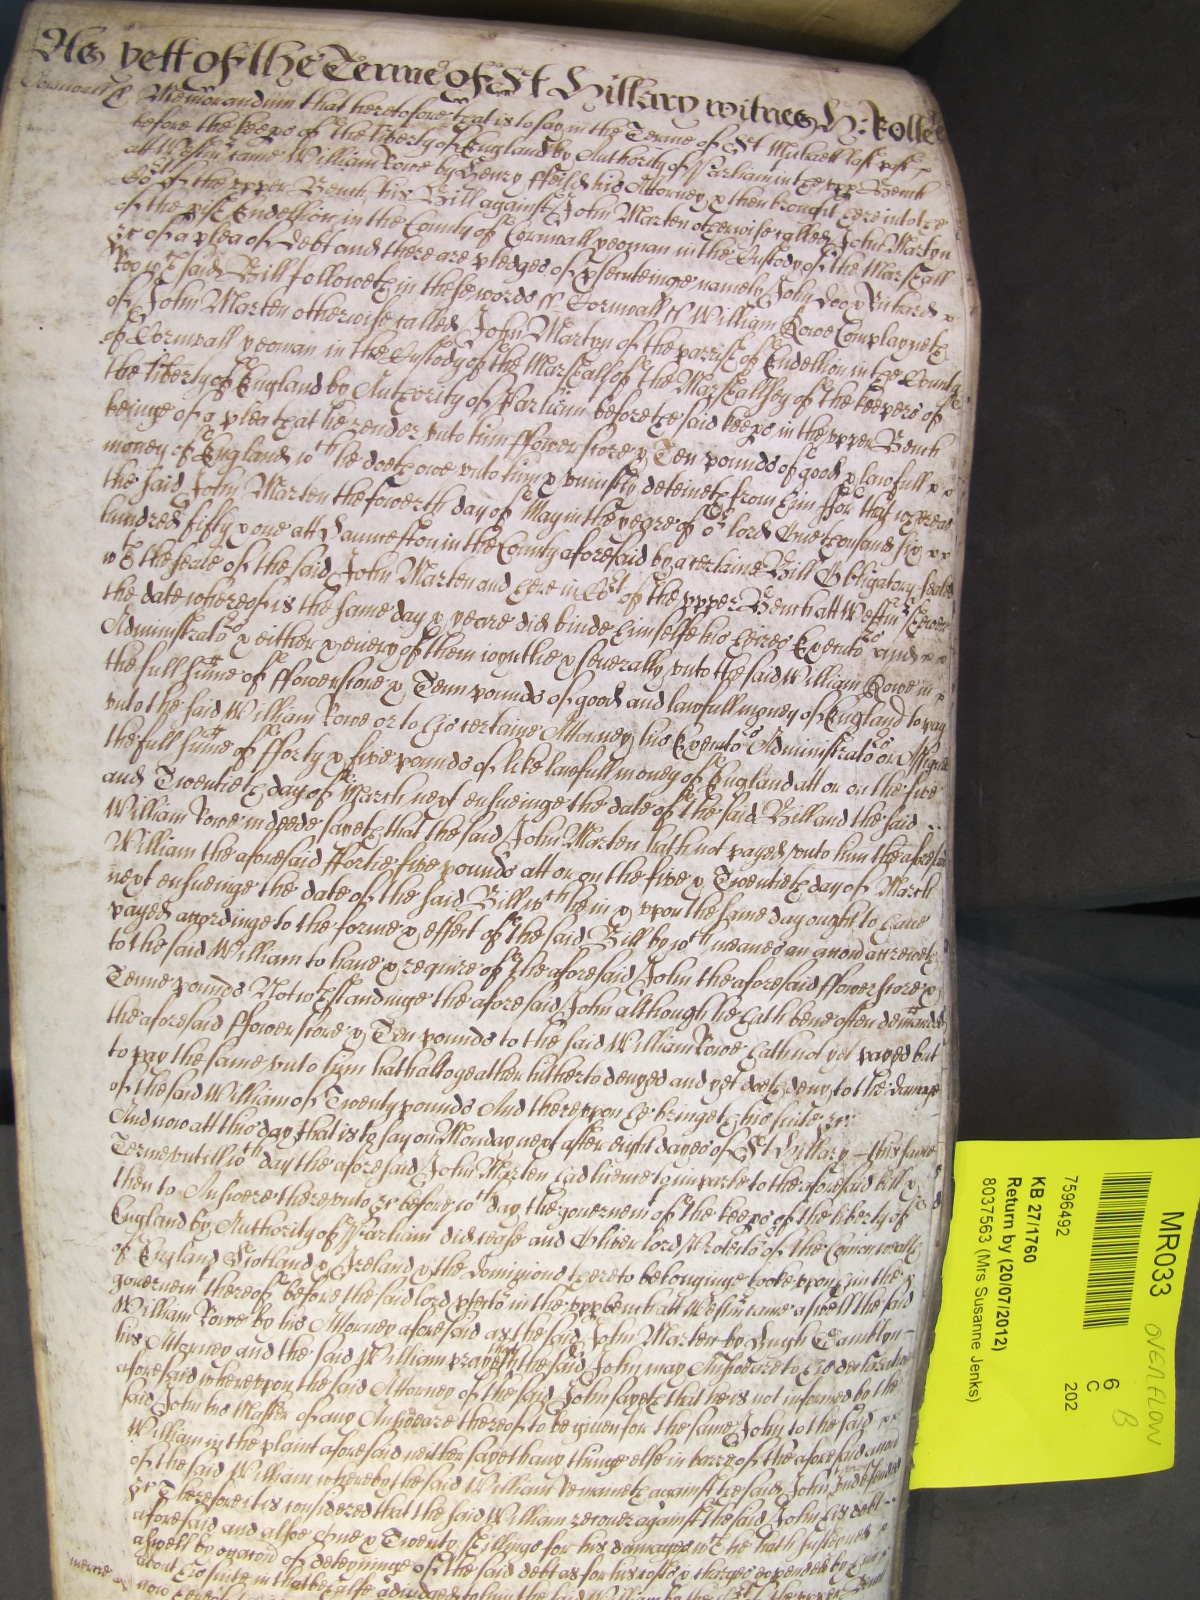 As yett of the Terme of St Hillary witnes H: Rolle
Cornwall ss Memorandum that heretofore that is to say in the Terme of St Michaell last past
before the keeps of the liberty of England by Authority of Parliam in the upp Bench
att Westm came William Rowe by Henry ffeild his Attorney & then brought here into the
Cot of the upper Bench his Bill against John Marten otherwise called John Martyn
of the pish Endellion in the County of Cornwall yeoman in the Custody of the Marshall
&c of a plea of Debt and there are pledges of psecuteinge namely John Doo & Richard
Roo wch said Bill followeth in these words ss Cornwall ss William Rowe Complayneth
of John Marten otherwise called John Martyn of the parrish of Endellion in the County
of Cornwall yeoman in the Custody of the Marshall of the Marshallsey of the keepers of
the liberty of England by Authority of Parliam before the said keeps in the upper Bench
beinge of a plea that he render unto him ffower score & Ten pounds of good & lawfull
money of England wch he doeth owe unto him & uniustly deteineth from him ffor that whereas
the said John Marten the fowerth day of May in the yeare of or lord One thousand six
hundred fifty & one att in the County aforesaid by a certaine Bill Obligatory sealed
wth the seale of the said John Marten and here in Cort of the upper Bench att Westm shewen
the date whereof is the same day & yeare did binde himselfe his heires Executors and
Administrators & either & every of them ioyntlie & severally unto the said William Rowe in
the full sume of ffower score & Tenn pounds of good and lawfull money of England to pay
unto the said William Rowe or to his certaine Attorney his Executors Administrators or Assignes
the full sume of fforty & five pounds of like lawfull money of England att or on the five
and Twentieth day of March next ensueinge the date of the said Bill and the said
William Rowe in deede sayeth that the said John Marten hath not payed unto him the aforesaid
William the aforesaid ffortie five pounds att or on the five & Twentieth day of March
next ensueinge the date of the said Bill wch he in & upon the same day ought to have
payed accordinge to the forme & effect of the said Bill by wch meanes an accon accreweth
to the said William to have & require of the aforesaid John the aforesaid ffower score &
Tenne pounds Notwthstandinge the aforesaid John although he hath bene often demanded
the aforesaid ffower score & Ten pounds to the said William Rowe hath not yet payed but
to pay the same unto him hath altogeather hitherto denyed and yet doeth deny to the damage
of the said William of Twenty pounds And thereupon he bringeth his suite &c
And now att this day that is to say on Monday next after eight dayes of St Hillary this same
Terme untill wch day the aforesaid John Marten had licence to imparle to the aforesaid bill &
then to Answere thereunto &c before wch day the governemt of the keeps of the liberty of
England by Authority of Parliam did cease and Oliver lord Protector of the Comonwealth
of England Scotland & Ireland & the dominions thereto belonginge tooke upon him the
governemt thereof before the said lord ptector in the upp bench att Westm came aswell the said
William Rowe by his Attorney aforesaid as the said John Marten by Hugh Tamblyn
his Attorney and the said William prayeth that the said John may Answeare to his declaration
aforesaid whereupon the said Attorney of the said John sayeth that he is not informed by the
said John his Master of any Answeare thereof to be given for the same John to the said
William in the plaint aforesaid neither sayeth any thinge else in barre of the aforesaid accon
of the said William whereby the said William remaineth against the said John undefended
&c Therefore it is considered that the said William recover against the said John his debt
aforesaid and alsoe One & Twenty shillings for his damages wch he hath susteined
aswell by occacon of deteyninge of the said debt as for his costs & charges expended by him
about his suite in that behalfe adiudged to him the said William by the Cort of the upper Bench
MR033
OVERFLOW
B
6
C
202
7596492
KB 27/1760
Return by (20/07/2012)
8037563 (Mrs Susanne Jenks)